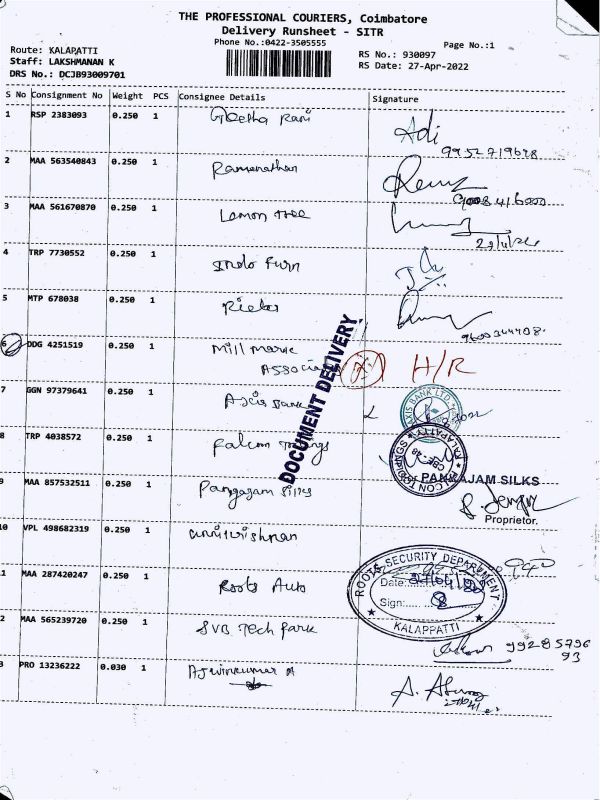 THE PROFESSIONAL COURIERS, Coimbatore
Delivery Runsheet - SITR
Phone No.:0422-3505555
Page No.:1
Route: KALAPATTI
Staff: LAKSHMANAN K
DRS No.: DCJB93009701
RS No.: 930097
RS Date: 27-Apr-2022
S No Consignment No Weight PCS Consignee Details Signature
1 RSP 2383093 0.250 1 Geetha Rani Adi
9952719698
2 MAA 563540843 0.250 1 Ramanathan
3 MAA 561670870 0.250 1 Lemon Tree
4 TRP 7730552 0.250 1 Indo Furn
5 MTP 678038 0.250 1 Rieter
6 DDG 4251519 0.250 1 Mill Marie
H/R
7 GGN 97379641 0.250 1 Axis Bank
AXIS BANK LTD.
DOCUMENT DELIVERY
8 TRP 4038572 0.250 1 Falcon Toolings
KALAPATTY
9 MAA 857532511 0.250 1 Pangajam Silks
PANKAJAM SILKS
Proprietor.
10 VPL 498682319 0.250 1
ROOTS SECURITY DEPARTMENT
1 MAA 287420247 0.250 1 Roots Auto
Date:
Sign:
KALAPPATTI
2 MAA 565239720 0.250 1 SVB Tech Park
99285796
93
3 PRO 13236222 0.030 1 Ajwinkumar A